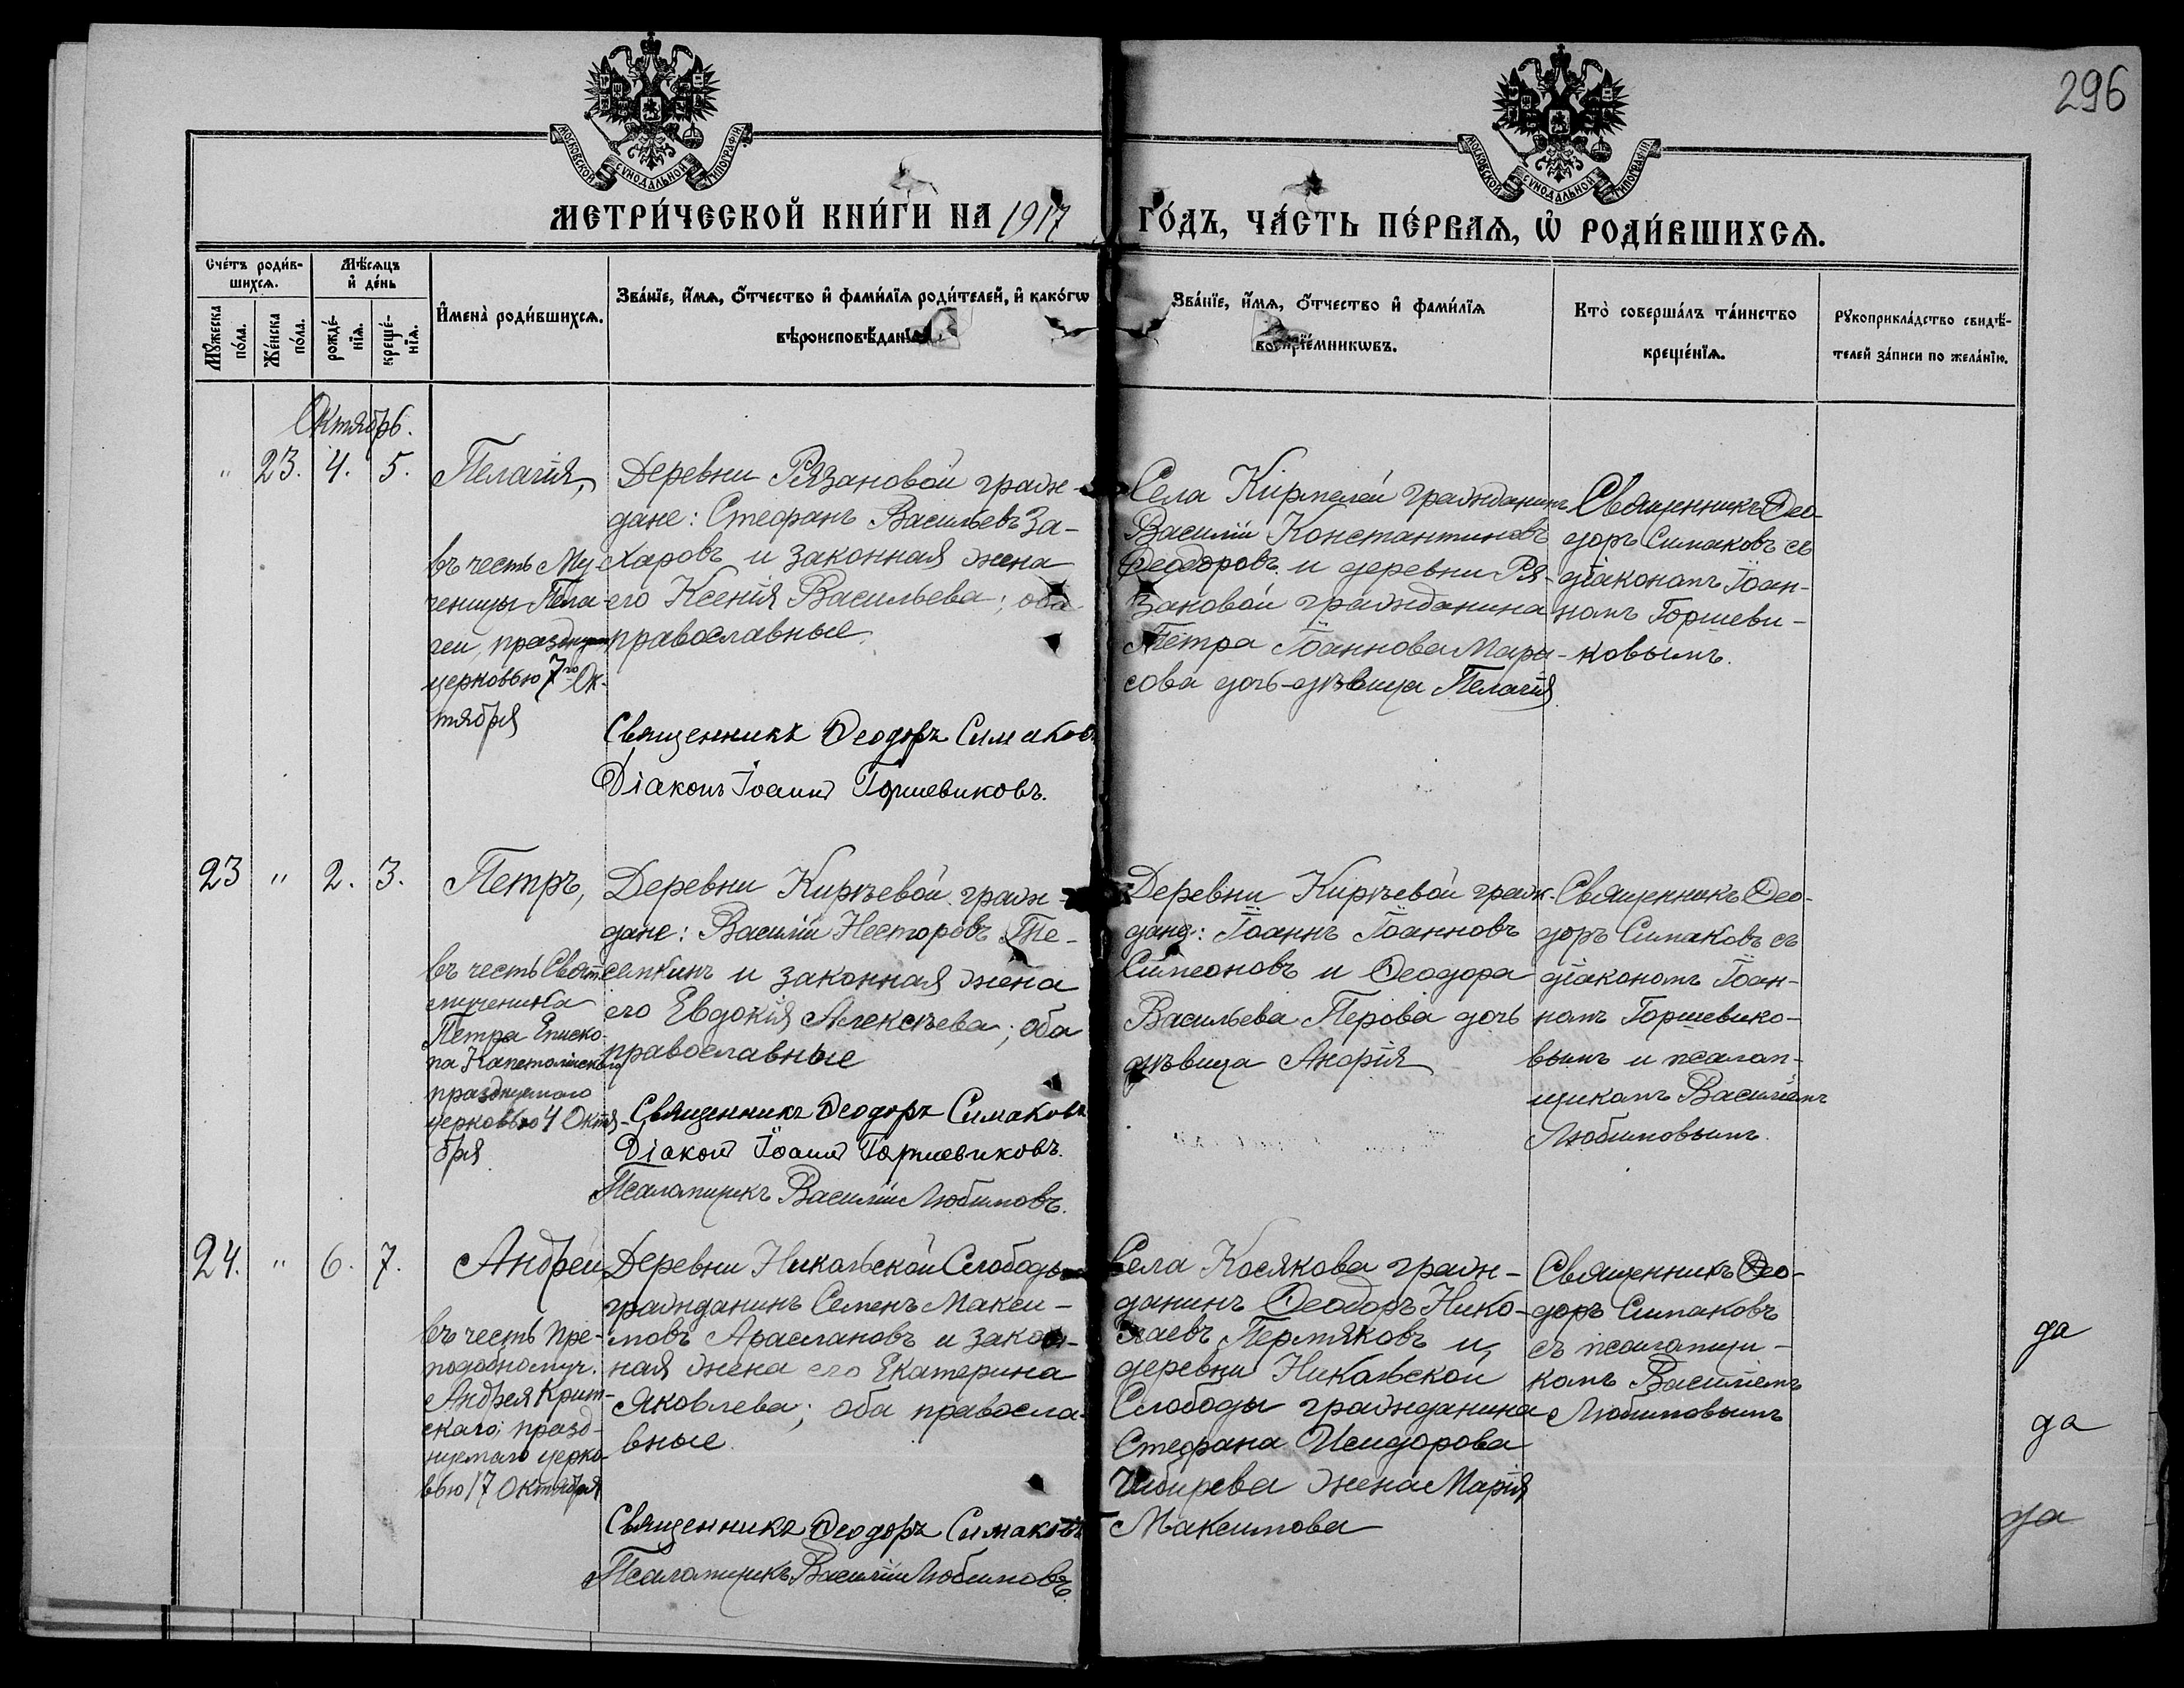 296
МОСКОВСКОЙ СѴНОДАЛЬНОЙ ТИПОГРАФІИ
МОСКОВСКОЙ СѴНОДАЛЬНОЙ ТИПОГРАФІИ
МЕТРИ́ЧЕСКОЙ КНИ́ГИ НА 1917 ГО́ДЪ, ЧА́СТЬ ПЕ́РВАѦ, Ѡ҆ РОДИ́ВШИХСѦ.
Сче́тъ роди́в-
шихсѧ.
Мѣ́сѧцъ
и҆ де́нь
Мꙋ́жеска
по́ла.
Же́нска
по́ла.
рожде́-
нїѧ.
креще́-
нїѧ.
И҆мена̀ роди́вшихсѧ.
Зва́нїе, и҆́мѧ, ѻ҆́тчество и҆ фами́лїѧ роди́телей, и҆ како́гѡ
вѣроисповѣ́данїѧ.
Зва́нїе, и҆́мѧ, ѻ҆́тчество и҆ фами́лїѧ
воспрїе́мникѡвъ.
Кто̀ соверша́лъ та́инство
креще́нїѧ.
Рꙋкоприкла́дство свидѣ́-
телей за́писи по жела́нїю.
Октябрь.
" 23. 4. 5.
Пелагія,
въ честь Му-
ченицы Пела-
геи, празднуем
церковью 7го Ок-
тября
Деревни Рязановой граж-
дане: Стефанъ Васильевъ За-
харовъ и законная жена
его Ксенія Васильева; оба
православные.
Священникъ Ѳеодоръ Симаковъ
Діаконъ Іоаннъ Горшевиковъ.
Села Кирпелей гражданинъ
Василій Константиновъ
Ѳеодоровъ и деревни Ря-
зановой гражданина
Петра Іоаннова Мары-
сова дочь-дѣвица Пелагія
Священникъ Ѳео-
доръ Симаковъ съ
діакономъ Іоан-
номъ Горшеви-
ковымъ.
23 " 2. 3.
Петръ,
въ честь Свят.
мученика
Петра Еписко-
па Капетолійскаго
празднуемаго
церковью 4 Октя-
бря
Деревни Киреевой граж-
дане: Василій Несторовъ Те-
семкинъ и законная жена
его Евдокія Алексѣева; оба
православные
Священникъ Ѳеодоръ Симаковъ
Діаконъ Іоаннъ Горшевиковъ.
Псаломщикъ Василій Любимовъ.
Деревни Киреевой граж-
дане: Іоаннъ Іоанновъ
Симеоновъ и Ѳеодора
Васильева Перова дочь
дѣвица Анфія
Священникъ Ѳео-
доръ Симаковъ съ
діакономъ Іоан-
номъ Горшевико-
вымъ и псалом-
щикомъ Василіемъ
Любимовымъ.
24. " 6. 7.
Андрей
въ честь Пре-
подобномуч.
Андрея Крит-
скаго, празд-
нуемаго церко-
вью 17 Октября
Деревни Никольской Слободы
гражданинъ Семенъ Макси-
мовъ Араслановъ и закон-
ная жена его Екатерина
Яковлева; оба правосла-
вные.
Священникъ Ѳеодоръ Симаковъ
Псаломщикъ Василій Любимовъ
Села Косякова граж-
данинъ Ѳеодоръ Нико-
лаевъ Пермяковъ и
деревни Никольской
Слободы гражданина
Стефана Исидорова
Чибирева жена Марія
Максимова
Священникъ Ѳео-
доръ Симаковъ
съ псаломщи-
комъ Василіемъ
Любимовымъ
да
да
да